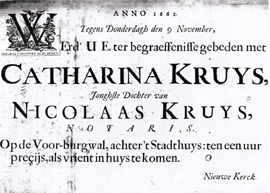 ANNO 1662.
Tegens Donderdagh den 9 November,
WErd' U E ter begraeffenisse gebeden met
CATHARINA KRUYS,
Jonghste Dochter van
NICOLAAS KRUYS,
NOTARIS.
Op de Voor-burgwal, achter't Stadthuys: ten een uur
precijs, als vrient in huys te komen.
Nieuwe Kerck.